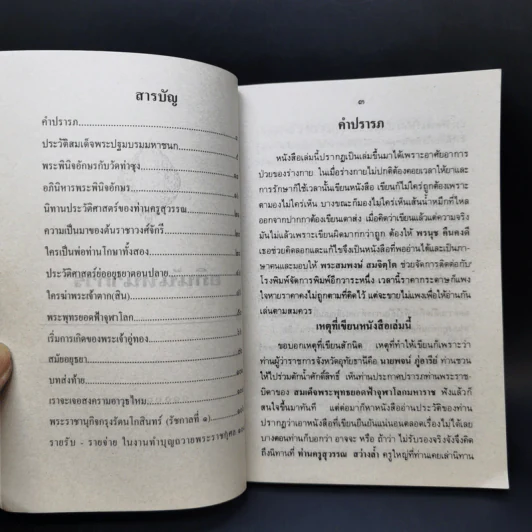 สารบัญ
คำปรารภ
ประวัติสมเด็จพระปฐมบรมมหาชนก
พระพินิจอักษรกับวัดท่าซุง
อภินิหารพระพินิจอักษร
นิทานประวัติศาสตร์ของท่านครูสุวรรณ
ความเป็นมาของต้นราชาวงศ์จักรี
ใครเป็นพ่อท่านโกษาทั้งสอง
ประวัติศาสตร์อยุธยาตอนปลาย
ใครฆ่าพระเจ้าตาก(สิน)
พระพุทธยอดฟ้าจุฬาโลก
เริ่มการเกิดของพระเจ้าอู่ทอง
สมัยอยุธยา
บทส่งท้าย
เราจะเจอสงครามอาวุธไหม
พระราชานุกิจกรุงรัตนโกสินทร์ (รัชกาลที่ ๑)
รายรับ - รายจ่าย ในงานทำบุญถวายพระราชกุศล
๓
คำปรารภ
หนังสือเล่มนี้ปรากฏเป็นเล่มขึ้นมาได้เพราะอาศัยอาการ
ป่วยของร่างกาย ในเมื่อร่างกายไม่ปกติต้องคอยเวลาให้ยาและ
การรักษาก็ใช้เวลานั้นเขียนหนังสือ เขียนก็ไม่ใคร่ถูกต้องเพราะ
ตามองไม่ใคร่เห็น บางขณะก็มองไม่ใคร่เห็นเส้นน้ำหมึกที่ไหล
ออกจากปากกาต้องเขียนเดาส่ง เมื่อคิดว่าเขียนแล้วแต่ความจริง
มันไม่แล้วเพราะเขียนผิดมากกว่าถูก ต้องให้ พรนุช คืนคงดี
เธอช่วยคัดลอกและแก้ไขจึงเป็นหนังสือที่พออ่านได้และเป็นภา-
ษาคนและมอบให้ พระสมพงษ์ สมจิตฺโต ช่วยจัดการติดต่อกับ
โรงพิมพ์จัดการพิมพ์อีกวาระหนึ่ง เวลานี้ราคากระดาษก็แพง
ใจหายราคาคงไม่ถูกตามที่คิดไว้ แต่จะขายไม่แพงเพื่อให้อ่านกัน
เล่นตามสมควร
เหตุที่เขียนหนังสือเล่มนี้
ขอบอกเหตุที่เขียนสักนิด เหตุที่ทำให้เขียนก็เพราะว่า
ท่านผู้ว่าราชการจังหวัดอุทัยธานีคือ นายพจน์ ภู่อารีย์ ท่านชวน
ให้ไปร่วมตักน้ำศักดิ์สิทธิ์ เห็นท่านประกาศปรารภท่านพระราช-
บิดาของ สมเด็จพระพุทธยอดฟ้าจุฬาโลกมหาราช ฟังแล้วก็
สนใจขึ้นมาทันที แต่ต่อมาก็หาหนังสืออ่านประวัติของท่าน
ปรากฏว่าเอาหนังสือที่เขียนยืนยันแน่นอนตลอดเรื่องไม่ได้เลย
บางตอนท่านก็บอกว่า อาจจะ หรือ ถ้าว่า ไม่รับรองจริงจังจึงคิด
ถึงนิทานที่ ท่านครูสุวรรณ สว่างล้ำ ครูใหญ่ที่ท่านเคยเล่านิทาน